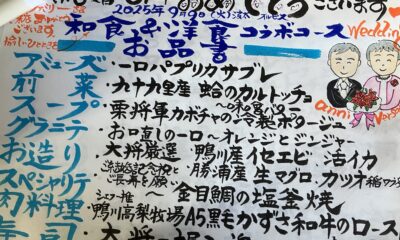 ございます
2025年9月9日(火)
和食&洋食コラボコース
お品書
Wedding
anniversary
アミューズ ・一口パプリカサブレ
前菜 ・九十九里産 蛤のカルトッチョ
スープ ・栗将軍カボチャの冷製ポタージュ
グラニテ ・お口直しの一口〜オレンジとジンジャー
お造り ・大将厳選 鴨川産イセエビ 活イカ
勝浦産 生マグロ カツオ
スペシャリテ 金目鯛の塩釜焼
肉料理 ・鴨川高梨牧場A5黒毛かずさ和牛のロース
寿司 ・大将